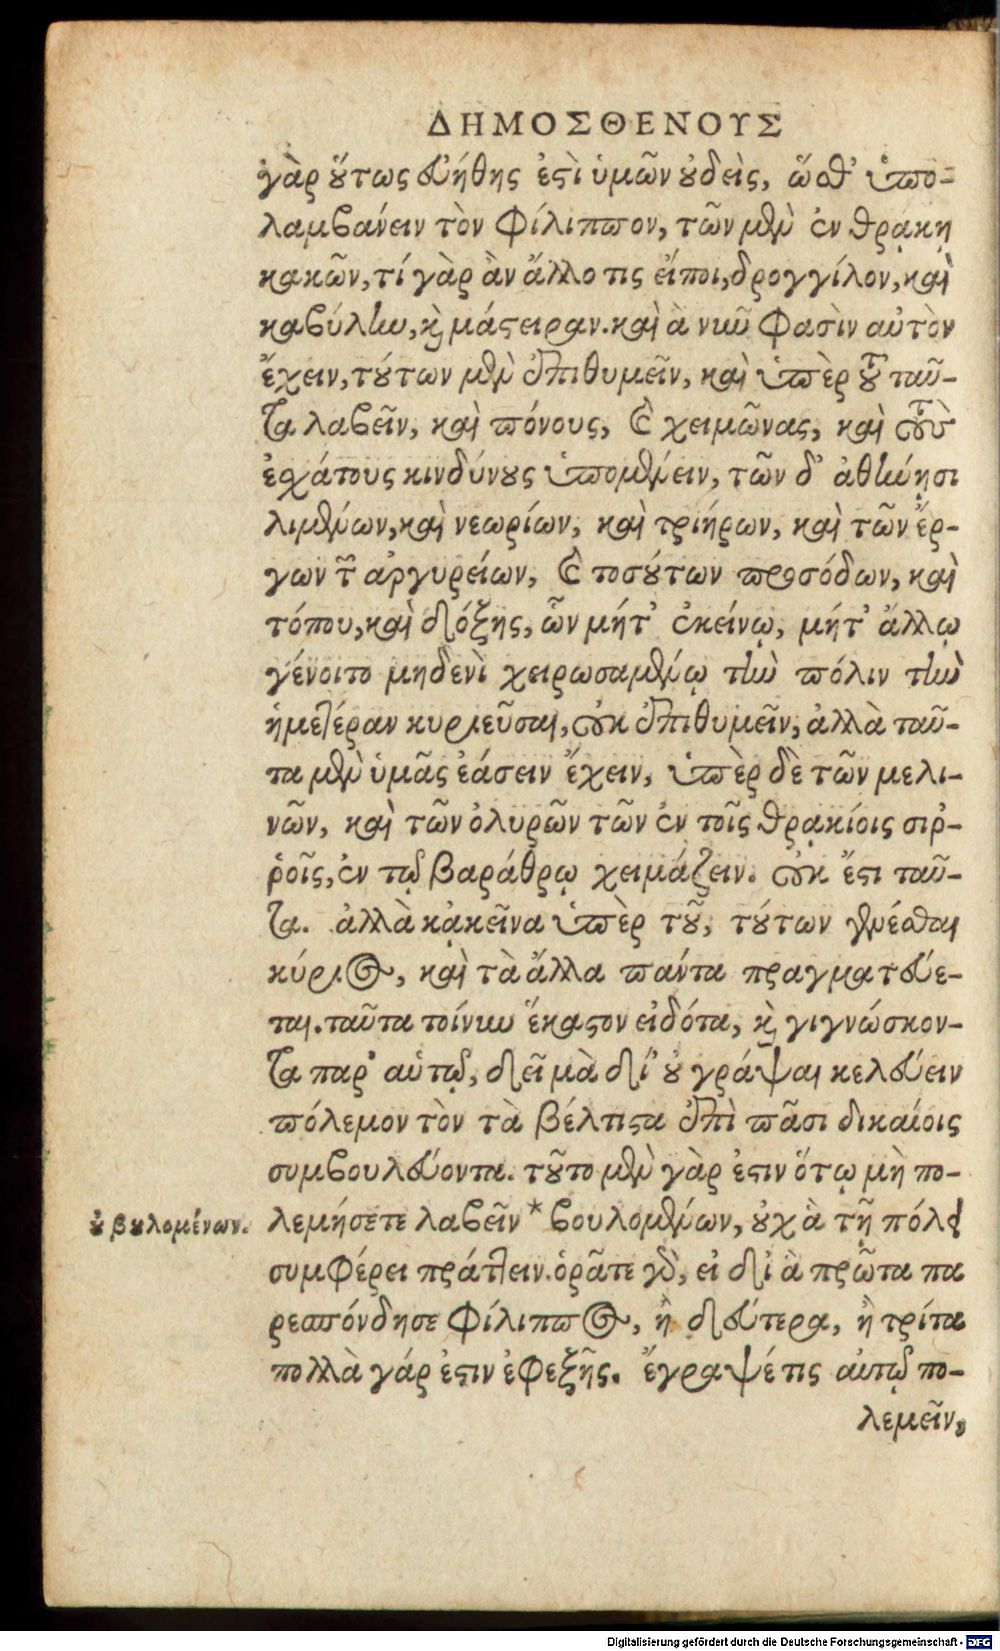 ΔΗΜΟΣΘΕΝΟΥΣ
γὰρ οὕτως εὐήθης ἐστὶ ὑμῶν οὐδεὶς, ὥσθ' ὑπο-
λαμβάνειν τὸν Φίλιππον, τῶν μὲν ἐν θρᾴκῃ
κακῶν, τί γὰρ ἂν ἄλλο τις εἴποι, δρογγίλον, καὶ
καβύλην, καὶ μάστειραν. καὶ ἃ νῦν φασὶν αὐτὸν
ἔχειν, τούτων μὲν ἐπιθυμεῖν, καὶ ὑπὲρ τοῦ ταῦ-
τα λαβεῖν, καὶ πόνους, καὶ χειμῶνας, καὶ τοὺς
ἐσχάτους κινδύνους ὑπομένειν, τῶν δ' ἀθήνῃσι
λιμένων, καὶ νεωρίων, καὶ τριήρων, καὶ τῶν ἔρ-
γων τῶν ἀργυρείων, καὶ τοσούτων προσόδων, καὶ
τόπου, καὶ δόξης, ὧν μήτ' ἐκείνῳ, μήτ' ἄλλῳ
γένοιτο μηδενὶ χειρωσαμένῳ τὴν πόλιν τὴν
ἡμετέραν κυριεῦσαι, οὐκ ἐπιθυμεῖν, ἀλλὰ ταῦ-
τα μὲν ὑμᾶς ἐάσειν ἔχειν, ὑπὲρ δὲ τῶν μελι-
νῶν, καὶ τῶν ὀλυρῶν τῶν ἐν τοῖς θρᾳκίοις σιῤ-
ῥοῖς, ἐν τῷ βαράθρῳ χειμάζειν. οὐκ ἔστι ταῦ-
τα. ἀλλὰ κᾀκεῖνα ὑπὲρ τοῦ, τούτων γενέσθαι
κύριος, καὶ τὰ ἄλλα πάντα πραγματεύε-
ται. ταῦτα τοίνυν ἕκαστον εἰδότα, καὶ γιγνώσκον-
τα παρ' αὑτῷ, δεῖ μὰ δί' οὐ γράψαι κελεύειν
πόλεμον τὸν τὰ βέλτιστα ἐπὶ πᾶσι δικαίοις
συμβουλεύοντα. τοῦτο μὲν γὰρ ἐστιν ὅτῳ μὴ πο-
λεμήσετε λαβεῖν * βουλομένων, οὐχ ἃ τῇ πόλει
οὐ βουλομένων.
συμφέρει πράττειν. ὁρᾶτε γὰρ, εἰ δι' ἃ πρῶτα πα
ρεσπόνδησε Φίλιππος, ἢ δεύτερα, ἢ τρίτα
πολλὰ γάρ ἐστιν ἐφεξῆς. ἔγραψέ τις αὐτῷ πο-
λεμεῖν,
Digitalisierung gefördert durch die Deutsche Forschungsgemeinschaft - DFG